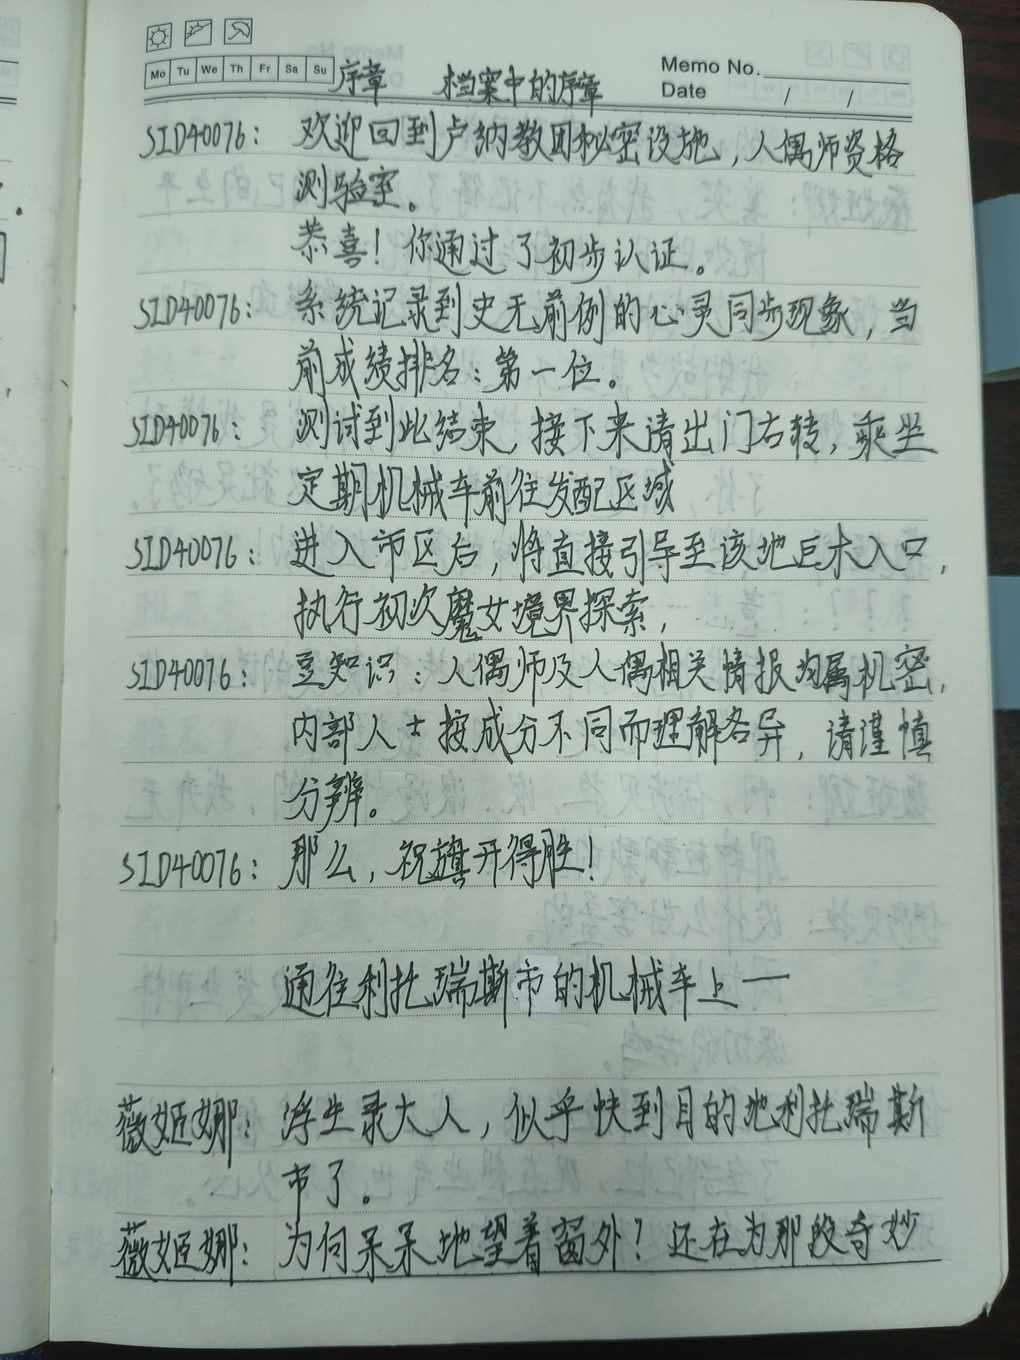 Mo Tu We Th Fr Sa Su
Memo No.
Date / /
序章 档案中的序章
SID40076：欢迎回到卢纳教团秘密设施，人偶师资格
测验室。
恭喜！你通过了初步认证。
SID40076：系统记录到史无前例的心灵同步现象，当
前成绩排名：第一位。
SID40076：测试到此结束，接下来请出门右转，乘坐
定期机械车前往发配区域
SID40076：进入市区后，将直接引导至该地巨木入口，
执行初次魔女境界探索，
SID40076：豆知识：人偶师及人偶相关情报均属机密，
内部人士按成分不同而理解各异，请谨慎
分辨。
SID40076：那么，祝旗开得胜！
通往利托瑞斯市的机械车上一
薇姬娜：浮生录大人，似乎快到目的地利托瑞斯
市了。
薇姬娜：为何呆呆地望着窗外？还在为那段奇妙